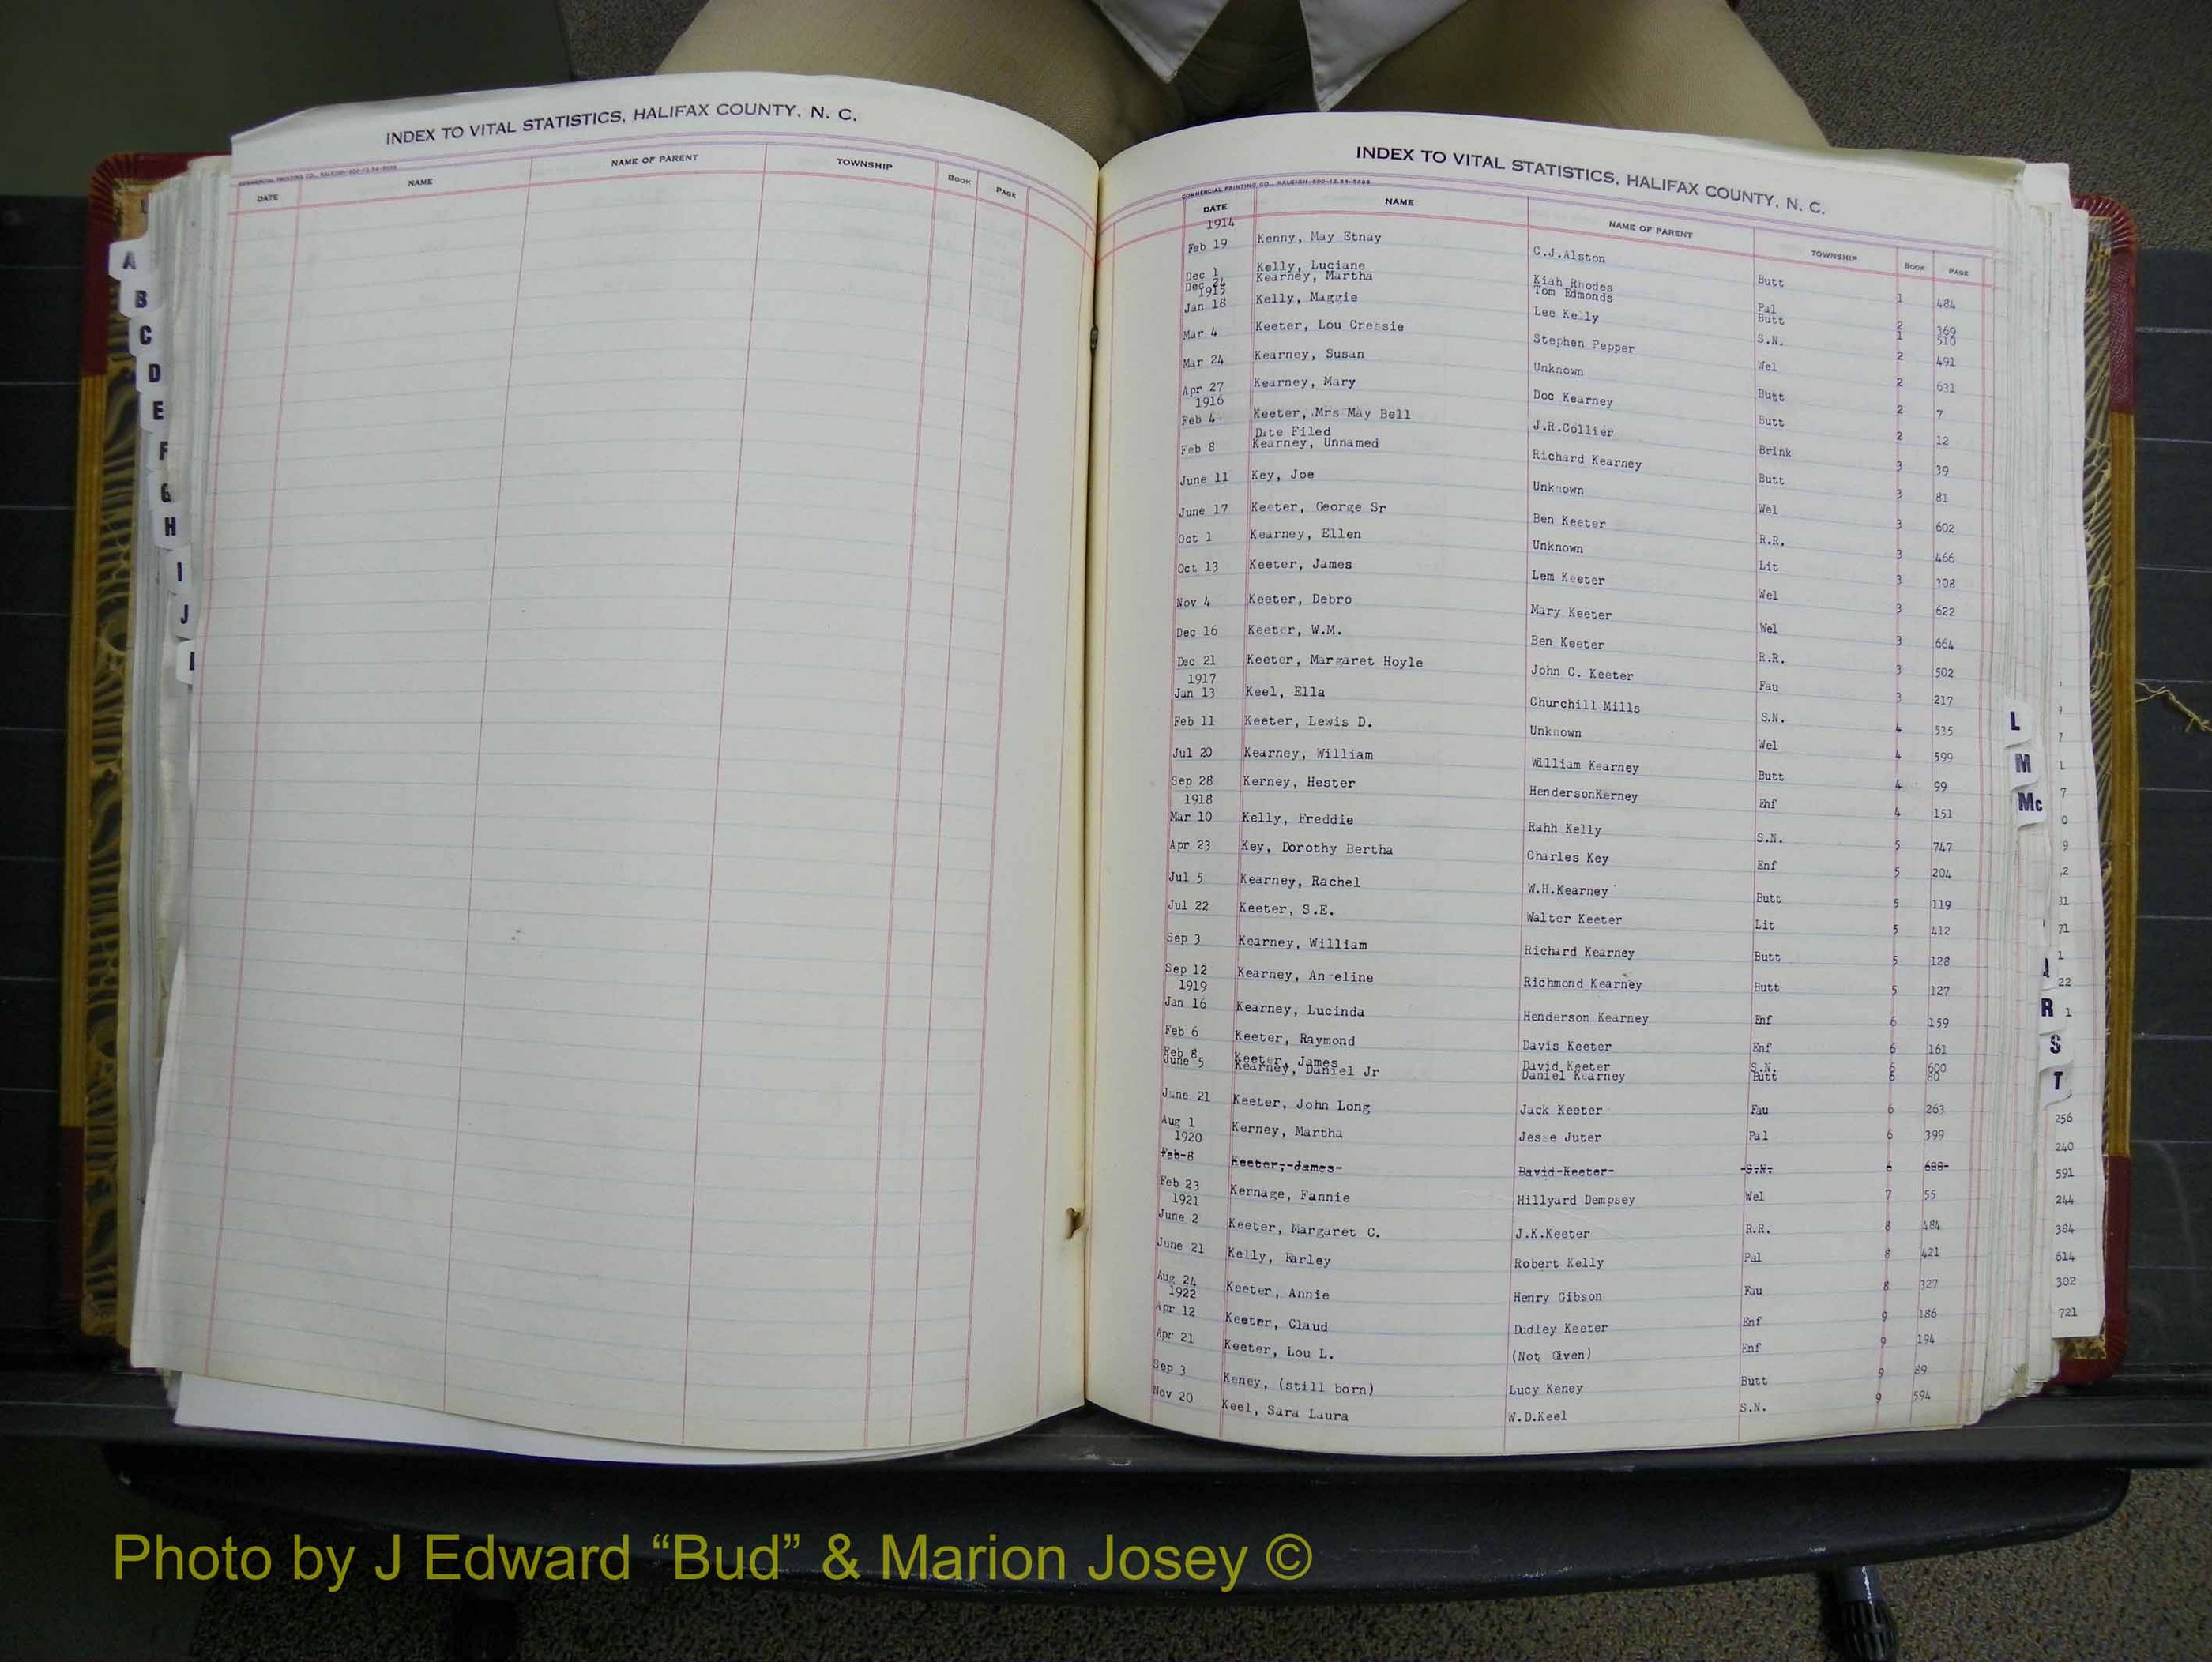 INDEX TO VITAL STATISTICS, HALIFAX COUNTY, N. C.
DATE NAME NAME OF PARENT TOWNSHIP BOOK PAGE
A
B
C
D
E
F
G
H
I
J
INDEX TO VITAL STATISTICS, HALIFAX COUNTY, N. C.
COMMERCIAL PRINTING CO., RALEIGH
DATE NAME NAME OF PARENT TOWNSHIP BOOK PAGE
1914
Feb 19 Kenny, May Etnay C.J.Alston Butt 1 484
Dec 1 Kelly, Luciane Kiah Rhodes Pal 2 369
Dec 24 Kearney, Martha Tom Edmonds Butt 1 510
1915
Jan 18 Kelly, Maggie Lee Kelly S.N. 2 491
Mar 4 Keeter, Lou Cressie Stephen Pepper Wel 2 631
Mar 24 Kearney, Susan Unknown Butt 2 7
Apr 27 Kearney, Mary Doc Kearney Butt 2 12
1916
Feb 4 Keeter, Mrs May Bell J.R.Collier Brink 3 39
Date Filed
Feb 8 Kearney, Unnamed Richard Kearney Butt 3 81
June 11 Key, Joe Unknown Wel 3 602
June 17 Keeter, George Sr Ben Keeter R.R. 3 466
Oct 1 Kearney, Ellen Unknown Lit 3 308
Oct 13 Keeter, James Lem Keeter Wel 3 622
Nov 4 Keeter, Debro Mary Keeter Wel 3 664
Dec 16 Keeter, W.M. Ben Keeter R.R. 3 502
Dec 21 Keeter, Margaret Hoyle John C. Keeter Fau 3 217
1917
Jan 13 Keel, Ella Churchill Mills S.N. 4 535
Feb 11 Keeter, Lewis D. Unknown Wel 4 599
Jul 20 Kearney, William William Kearney Butt 4 99
Sep 28 Kerney, Hester HendersonKerney Enf 4 151
1918
Mar 10 Kelly, Freddie Rahh Kelly S.N. 5 747
Apr 23 Key, Dorothy Bertha Charles Key Enf 5 204
Jul 5 Kearney, Rachel W.H.Kearney Butt 5 119
Jul 22 Keeter, S.E. Walter Keeter Lit 5 412
Sep 3 Kearney, William Richard Kearney Butt 5 128
Sep 12 Kearney, An eline Richmond Kearney Butt 5 127
1919
Jan 16 Kearney, Lucinda Henderson Kearney Enf 6 159
Feb 6 Keeter, Raymond Davis Keeter Enf 6 161
Feb 8 Keeter, James David Keeter S.N. 6 600
June 5 Kearney, Daniel Jr Daniel Kearney Butt 6 80
June 21 Keeter, John Long Jack Keeter Fau 6 263
Aug 1 Kerney, Martha Jesse Juter Pal 6 399
1920
Feb 8 Keeter, James David Keeter S.N. 6 600
Feb 23 Kernage, Fannie Hillyard Dempsey Wel 7 55
1921
June 2 Keeter, Margaret C. J.K.Keeter R.R. 8 484
June 21 Kelly, Earley Robert Kelly Pal 8 421
Aug 24 Keeter, Annie Henry Gibson Fau 8 327
1922
Apr 12 Keeter, Claud Dudley Keeter Enf 9 186
Apr 21 Keeter, Lou L. (Not Given) Enf 9 194
Sep 3 Keney, (still born) Lucy Keney Butt 9 89
Nov 20 Keel, Sara Laura W.D.Keel S.N. 9 594
L
M
Mc
R
S
T
256
240
591
244
384
614
302
721
Photo by J Edward “Bud” & Marion Josey ©